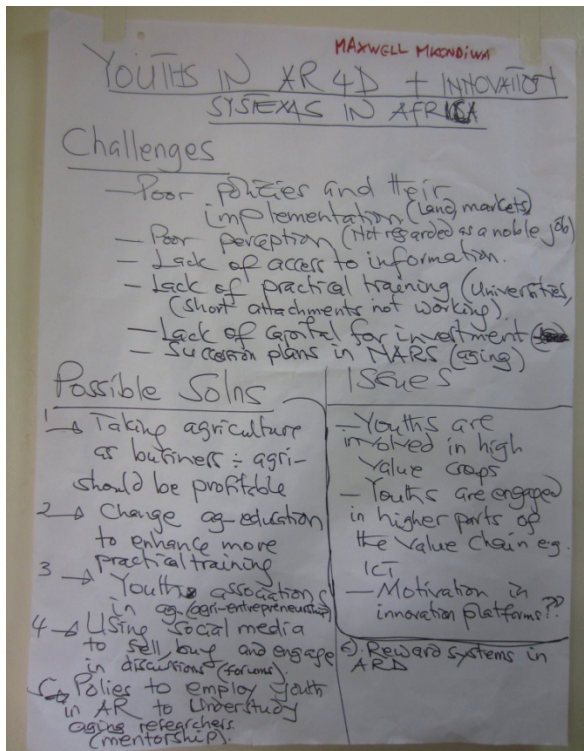 MAXWELL MKONDIWA
YOUTHS IN AR4D + INNOVATION
SYSTEMS IN AFRICA
Challenges
— Poor policies and their
implementation (land, markets)
— Poor perception (Not regarded as a noble job)
— Lack of access to information.
— Lack of practical training (Universities,
(short attachments not working)
— Lack of capital for investment
— Succession plans in NARS (aging)
Possible Solns
1 → Taking agriculture
as business ÷ agri-
should be profitable
2 → Change ag-education
to enhance more
practical training
3 → Youths associations
in ag (agri-entrepreneurship)
4 → Using social media
to sell, buy and engage
in discussions (forums).
5 → Polies to employ youth
in AR to Understudy
aging researchers
(mentorship).
Issues
— Youths are
involved in high
value crops
— Youths are engaged
in higher parts of
the value chain e.g.
ICT
— Motivation in
innovation platforms??
6). Reward systems in
ARD